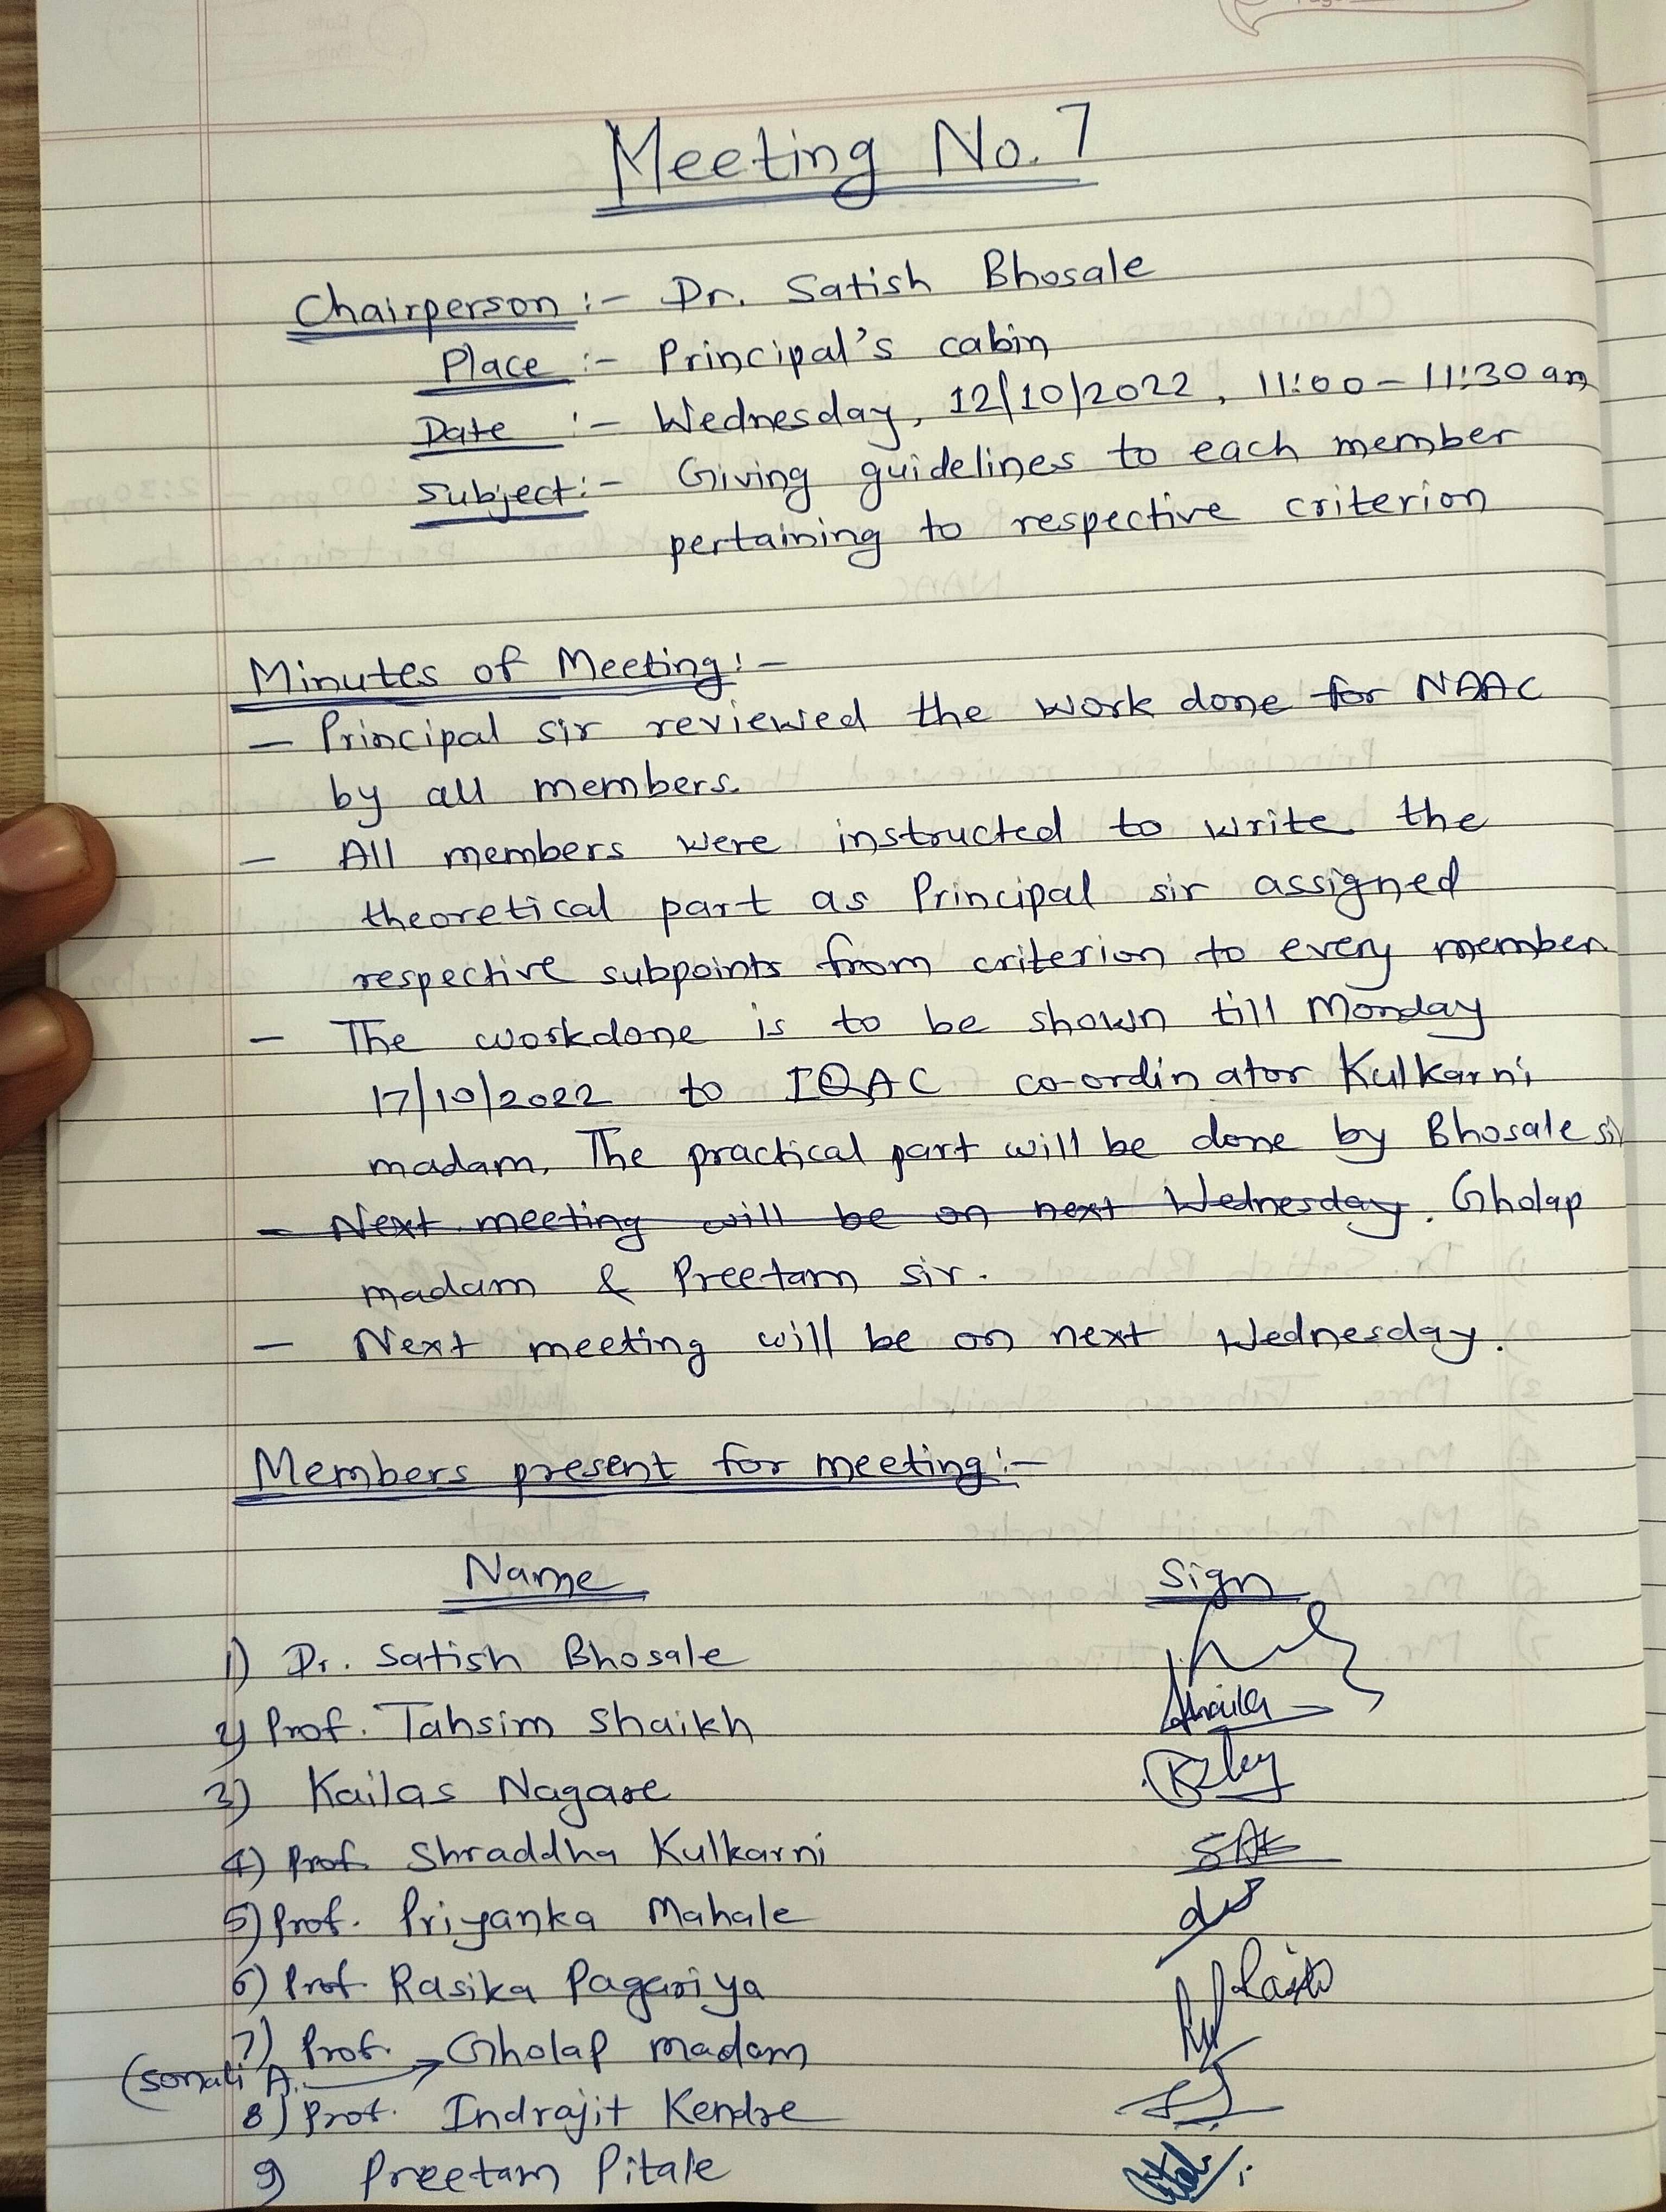 Meeting No. 7
Chairperson :- Dr. Satish Bhosale
Place :- Principal's cabin
Date :- Wednesday, 12/10/2022, 11:00 - 11:30 am
Subject :- Giving guidelines to each member
pertaining to respective criterion
Minutes of Meeting :-
- Principal sir reviewed the work done for NAAC
by all members.
- All members were instructed to write the
theoretical part as Principal sir assigned
respective subpoints from criterion to every member
- The workdone is to be shown till Monday
17/10/2022 to IQAC co-ordinator Kulkarni
madam. The practical part will be done by Bhosale sir
- Next meeting will be on next Wednesday. Gholap
madam & Preetam sir.
- Next meeting will be on next Wednesday.
Members present for meeting :-
Name Sign
1) Dr. Satish Bhosale
2) Prof. Tahsim Shaikh
3) Kailas Nagare
4) Prof. Shraddha Kulkarni
5) Prof. Priyanka Mahale
6) Prof. Rasika Pagariya
7) Prof. Gholap madam
(Sonali A.
8) Prof. Indrajit Kendre
9) Preetam Pitale